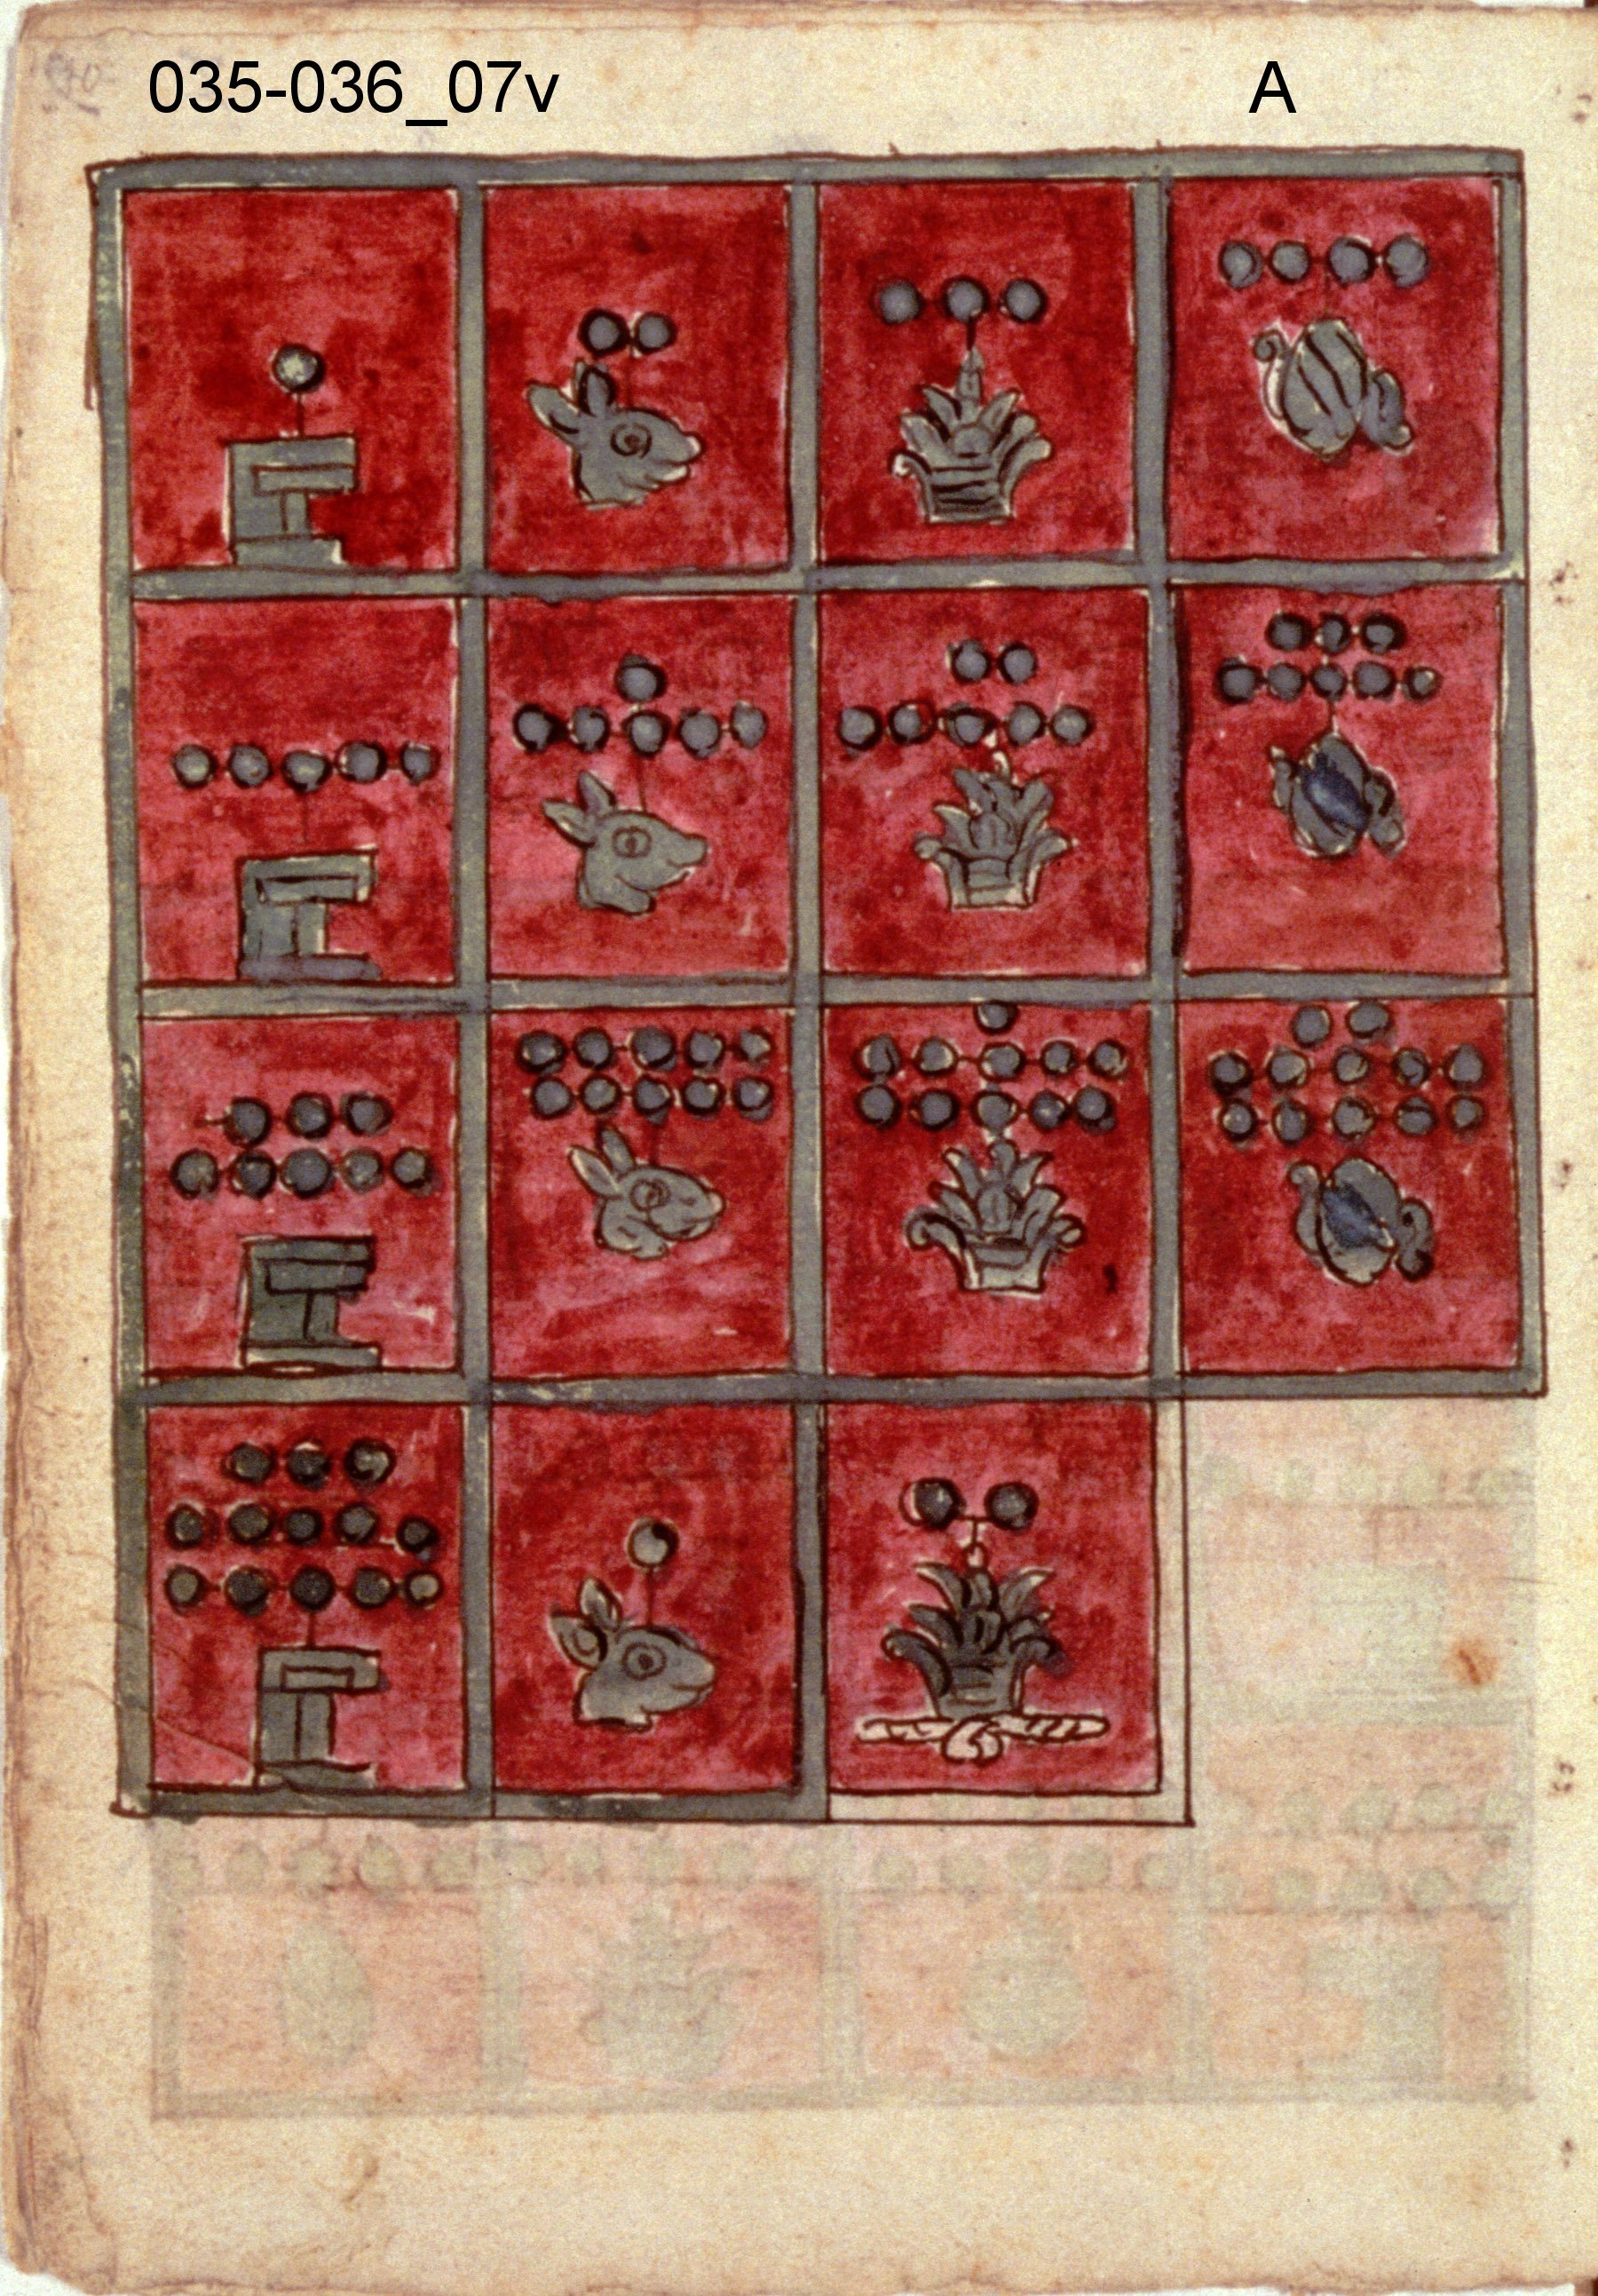 035-036_07v A